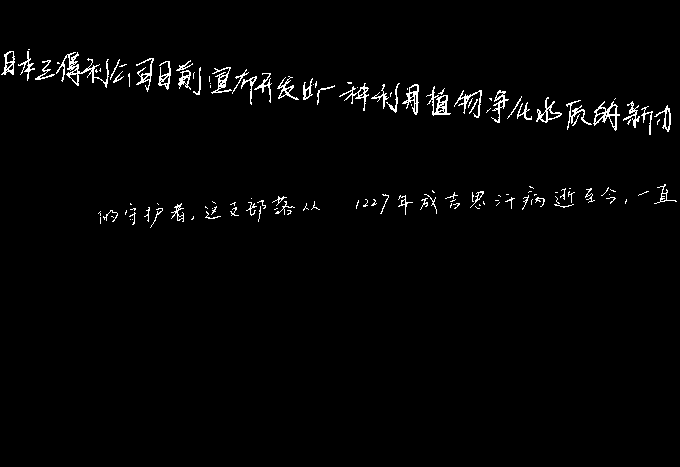 日本三得利公司日前宣布开发出一种利用植物净化水质的新力
的守护者,这支部落从 1227年成吉思汗病逝至今,一直